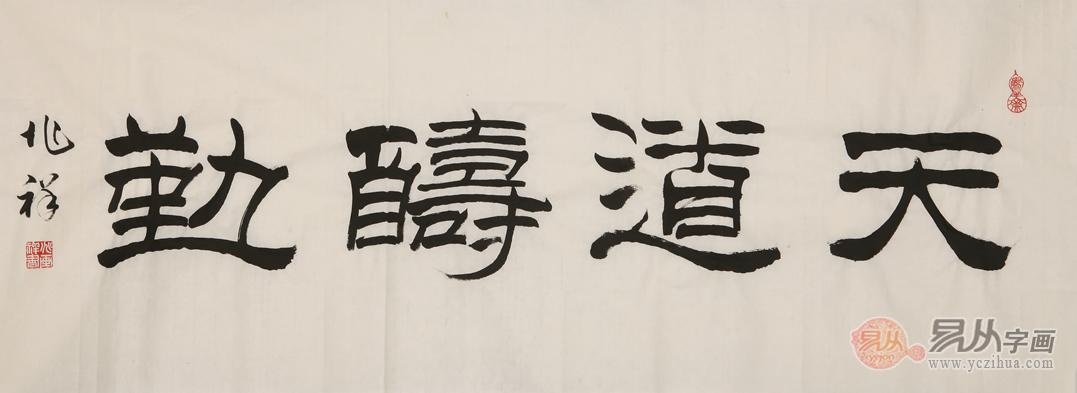 天道醻勤
兆祥
易从字画
www.yczihua.com